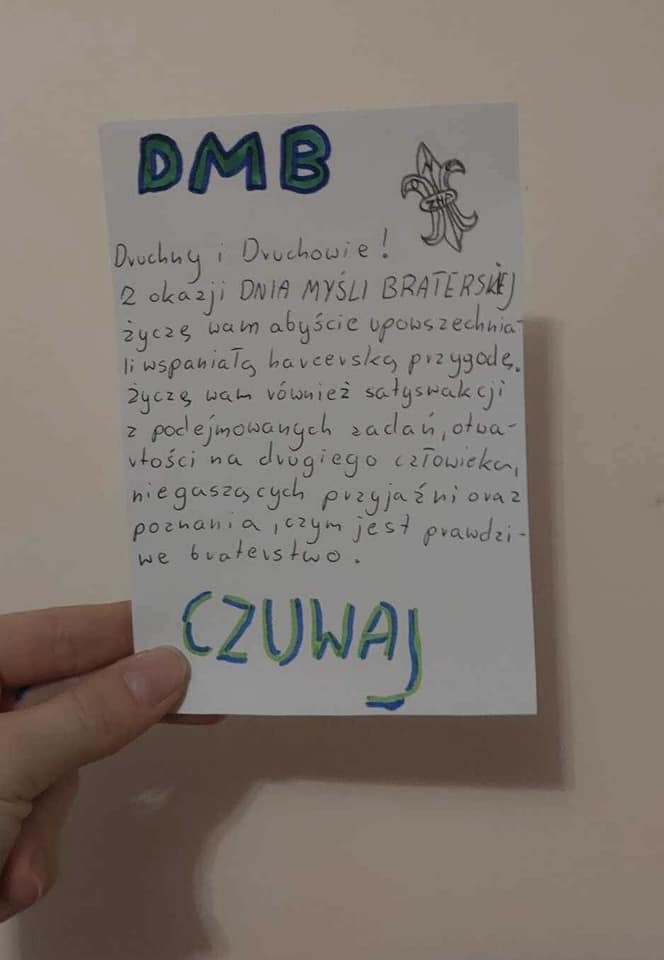 DMB
ZHP
Druchny i Druchowie!
Z okazji DNIA MYŚLI BRATERSKIEJ
życzę wam abyście upowszechnia-
li wspaniałą harcerską przygodę.
życzę wam również satyswakcji
z podejmowanych zadań, otwa-
rtości na drugiego człowieka,
niegaszących przyjaźni oraz
poznania, czym jest prawdzi-
we braterstwo.
CZUWAJ